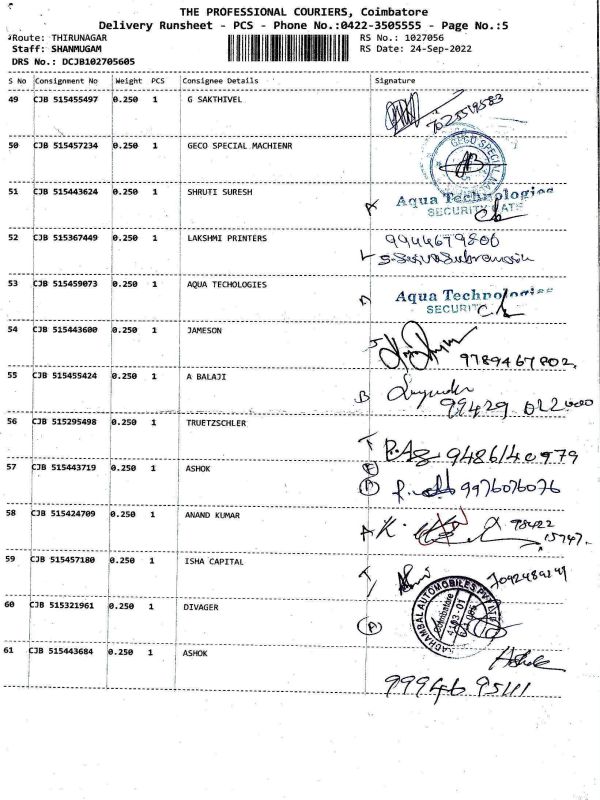 THE PROFESSIONAL COURIERS, Coimbatore
Delivery Runsheet - PCS - Phone No.:0422-3505555 - Page No.:5
Route: THIRUNAGAR RS No.: 1027056
Staff: SHANMUGAM RS Date: 24-Sep-2022
DRS No.: DCJB102705605
S No Consignment No Weight PCS Consignee Details Signature
49 CJB 515455497 0.250 1 G SAKTHIVEL
50 CJB 515457234 0.250 1 GECO SPECIAL MACHIENR
GECO SPECIAL
51 CJB 515443624 0.250 1 SHRUTI SURESH Aqua Technologies
SECURITY GATE
52 CJB 515367449 0.250 1 LAKSHMI PRINTERS 9944679800
53 CJB 515459073 0.250 1 AQUA TECHOLOGIES Aqua Technologies
SECURITY
54 CJB 515443600 0.250 1 JAMESON 9789467802
55 CJB 515455424 0.250 1 A BALAJI B
56 CJB 515295498 0.250 1 TRUETZSCHLER 9486140979
57 CJB 515443719 0.250 1 ASHOK A 9976076076
58 CJB 515424709 0.250 1 ANAND KUMAR A K. 98422
15747
59 CJB 515457180 0.250 1 ISHA CAPITAL
60 CJB 515321961 0.250 1 DIVAGER A
AUTOMOBILES PVT
Coimbatore
61 CJB 515443684 0.250 1 ASHOK Ashok
9994695111